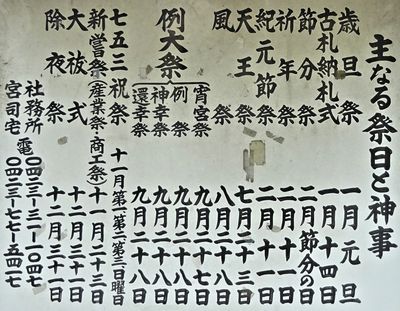 主なる祭日と神事
歳旦祭 一月元旦
古札納札式 一月十四日
節分祭 節分の日
祈年祭 二月十一日
紀元節祭 二月十一日
天王祭 七月二十三日
風祭 八月二十八日
例大祭
宵宮祭 九月二十七日
例祭 九月二十八日
神幸祭 九月二十八日
還幸祭 九月二十八日
七五三祝祭 十一月第一第二第三日曜日
新嘗祭(産業祭・商工祭) 十一月二十三日
大祓式 十二月三十一日
除夜祭 十二月三十一日
社務所 電 〇四二三-三一-〇四七
宮司宅 〇四二三-七七-五四一七